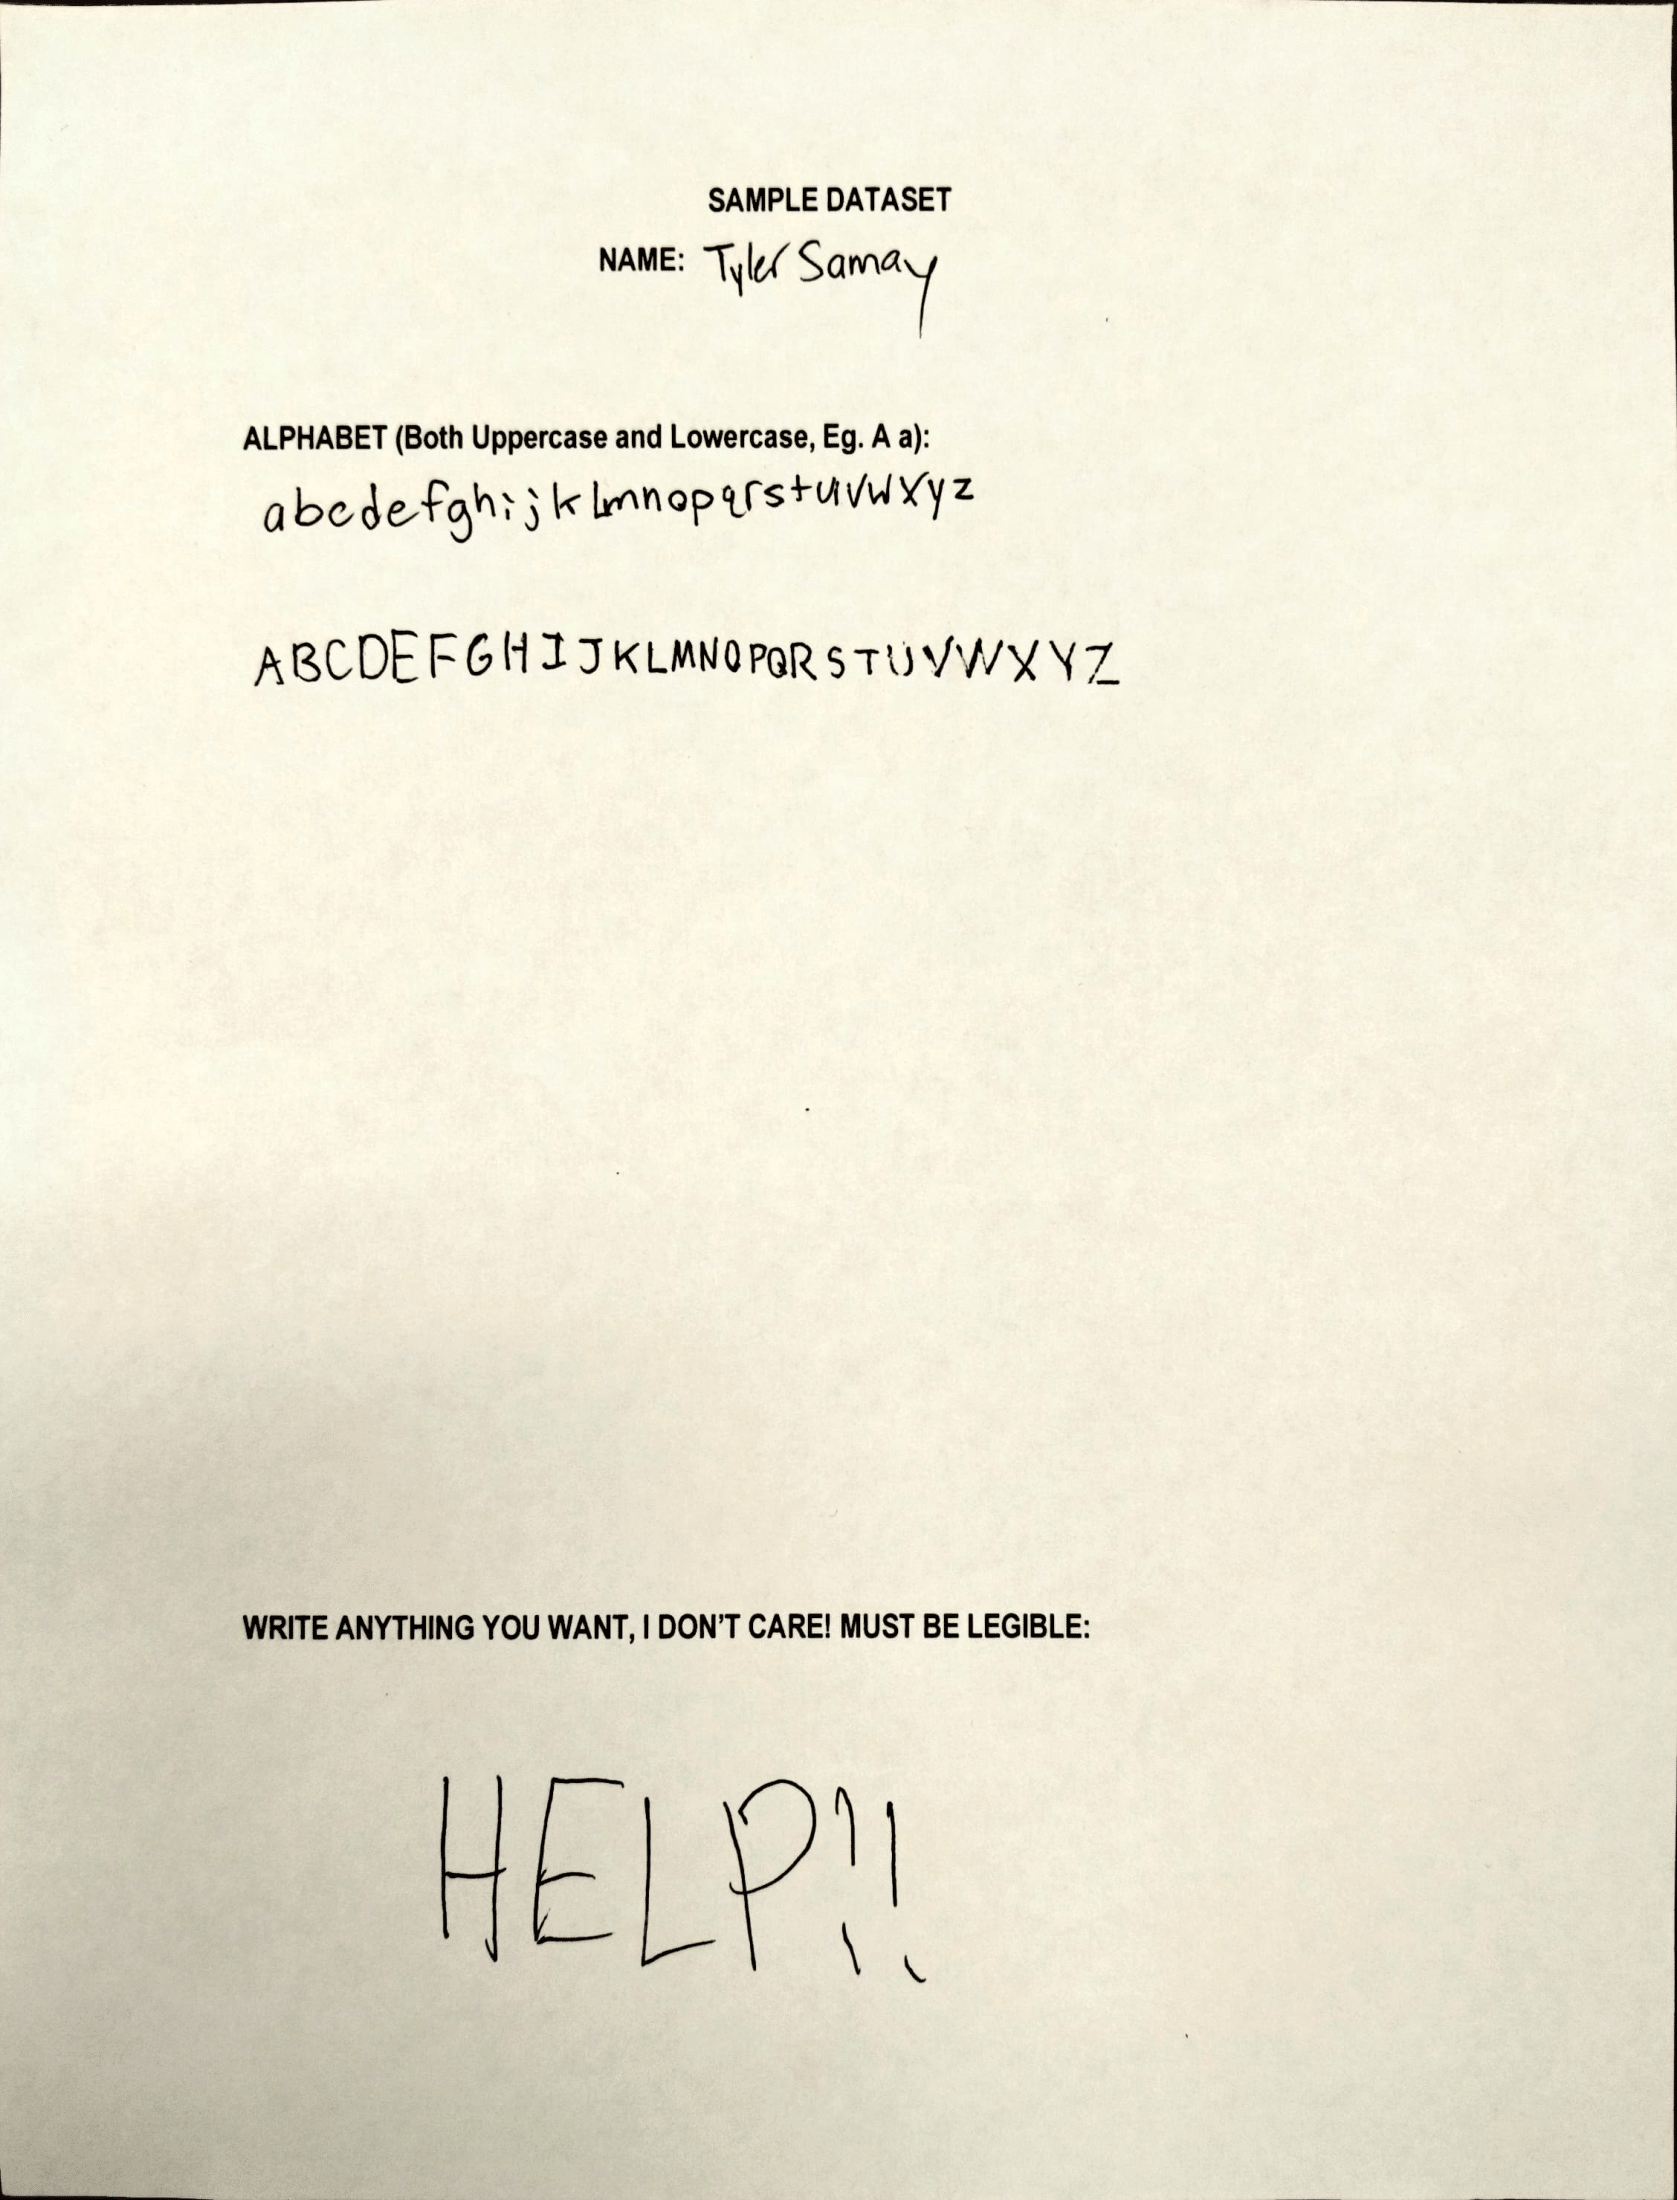 SAMPLE DATASET
NAME: Tyler Samay
ALPHABET (Both Uppercase and Lowercase, Eg. A a):
abcdefghijklmnopqrstuvwxyz
ABCDEFGHIJKLMNOPQRSTUVWXYZ
WRITE ANYTHING YOU WANT, I DON'T CARE! MUST BE LEGIBLE:
HELP!!